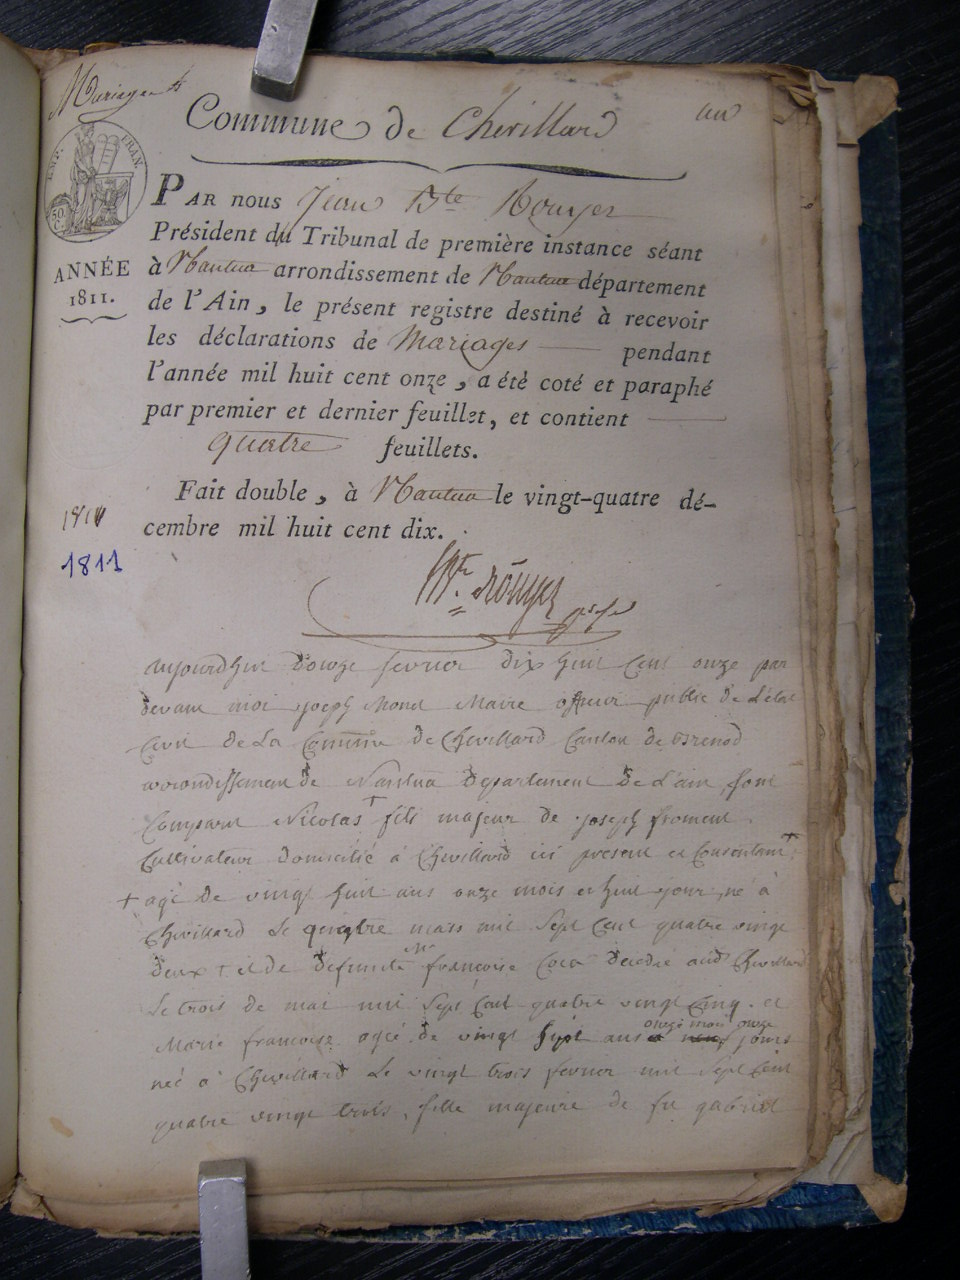 Mariages
Commune de Chevillard
un
EMP. FRAN.
50. C.
ANNÉE
1811.
PAR nous Jean Bte Rouyer
Président du Tribunal de première instance séant
à Nantua arrondissement de Nantua département
de l'Ain, le présent registre destiné à recevoir
les déclarations de Mariages pendant
l'année mil huit cent onze, a été coté et paraphé
par premier et dernier feuillet, et contient
quatre feuillets.
Fait double, à Nantua le vingt-quatre dé-
cembre mil huit cent dix.
1811
Bte Rouyer
aujourdhui douze fevrier dix huit cent onze par
devant moi joseph Monet Maire officier public de l'état
civil de La Commune de Chevillard Canton de Brenod
arrondissement de Nantua departement De L'ain, sont
Comparut Nicolas + fils majeur de joseph froment
Cultivateur domicilié à Chevillard ici present et Consentant +
+ agé de vingt huit ans onze mois et huit jour, né à
Chevillard Le quatre mars mil sept Cent quatre vingt
deux + et de defunte Me françoise decedée audt Chevillard
Le trois de mai mil sept Cent quatre vingt Cinq. et
Marie françoise agée de vingt sept ans onze mois onze jours
née à Chevillard Le vingt trois fevrier mil sept Cent
quatre vingt trois, fille majeure de fu gabriel